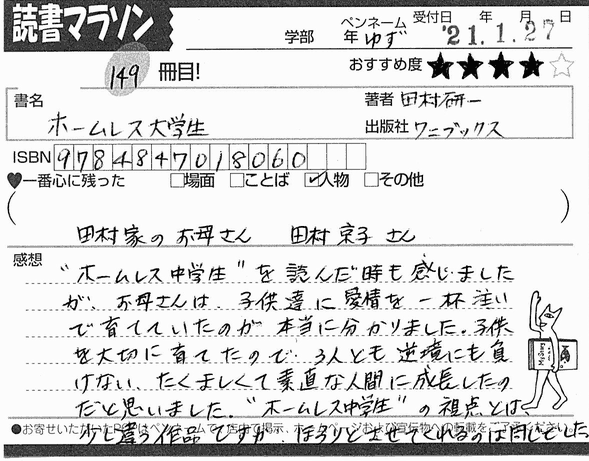 読書マラソン
学部 年 ペンネーム ゆず 受付日 年 月 日 '21.1.27
149 冊目!
おすすめ度 ★★★★☆
書名 ホームレス大学生
著者 田村研一
出版社 ワニブックス
ISBN 9784847018060
♥一番心に残った □場面 □ことば ☑人物 □その他
( 田村家のお母さん 田村京子さん )
感想
"ホームレス中学生"を読んだ時も感じました
が、お母さんは、子供達に愛情を一杯注い
で育てていたのが本当に分かりました。子供
を大切に育てたので、3人とも逆境にも負
けない、たくましくて素直な人間に成長したの
だと思いました。"ホームレス中学生"の視点とは、
少し違う作品ですが、ほろりとさせてくれるのは同じでした
●お寄せいただいた はペンネームで 店内で掲示、ホームページおよび宣伝物への転載をご了承ください。